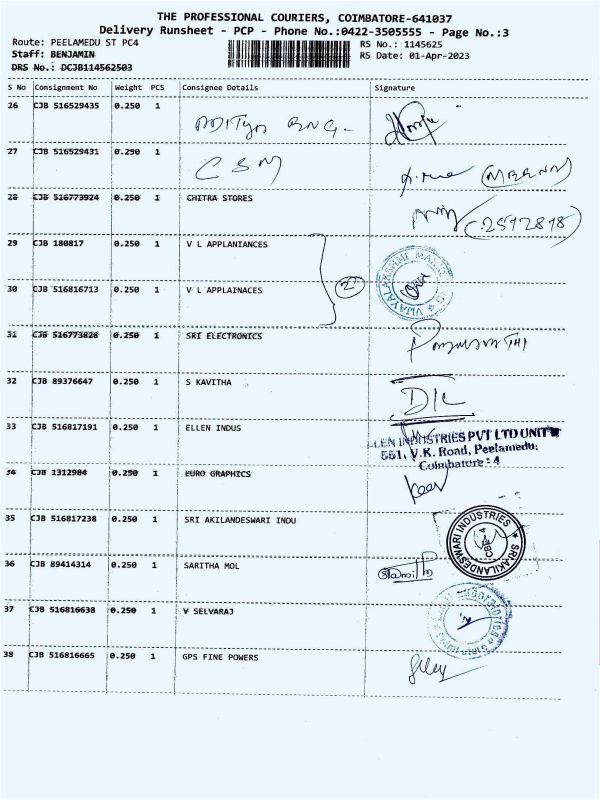 THE PROFESSIONAL COURIERS, COIMBATORE-641037
Delivery Runsheet - PCP - Phone No.:0422-3505555 - Page No.:3
Route: PEELAMEDU ST PC4 RS No.: 1145625
Staff: BENJAMIN RS Date: 01-Apr-2023
DRS No.: DCJB114562503
S No Consignment No Weight PCS Consignee Details Signature
26 CJB 516529435 0.250 1
27 CJB 516529431 0.250 1 CSM
28 CJB 516773924 0.250 1 CHITRA STORES
29 CJB 180817 0.250 1 V L APPLANIANCES
30 CJB 516816713 0.250 1 V L APPLAINACES
31 CJB 516773828 0.250 1 SRI ELECTRONICS
32 CJB 89376647 0.250 1 S KAVITHA D/L
33 CJB 516817191 0.250 1 ELLEN INDUS
LEN INDUSTRIES PVT LTD UNIT
551, V.K. Road, Peelamedu,
Coimbatore - 4
34 CJB 1312904 0.250 1 EURO GRAPHICS
35 CJB 516817238 0.250 1 SRI AKILANDESWARI INDU
SRI AKILANDESWARI INDUSTRIES
CBE-4
36 CJB 89414314 0.250 1 SARITHA MOL
37 CJB 516816638 0.250 1 V SELVARAJ
38 CJB 516816665 0.250 1 GPS FINE POWERS